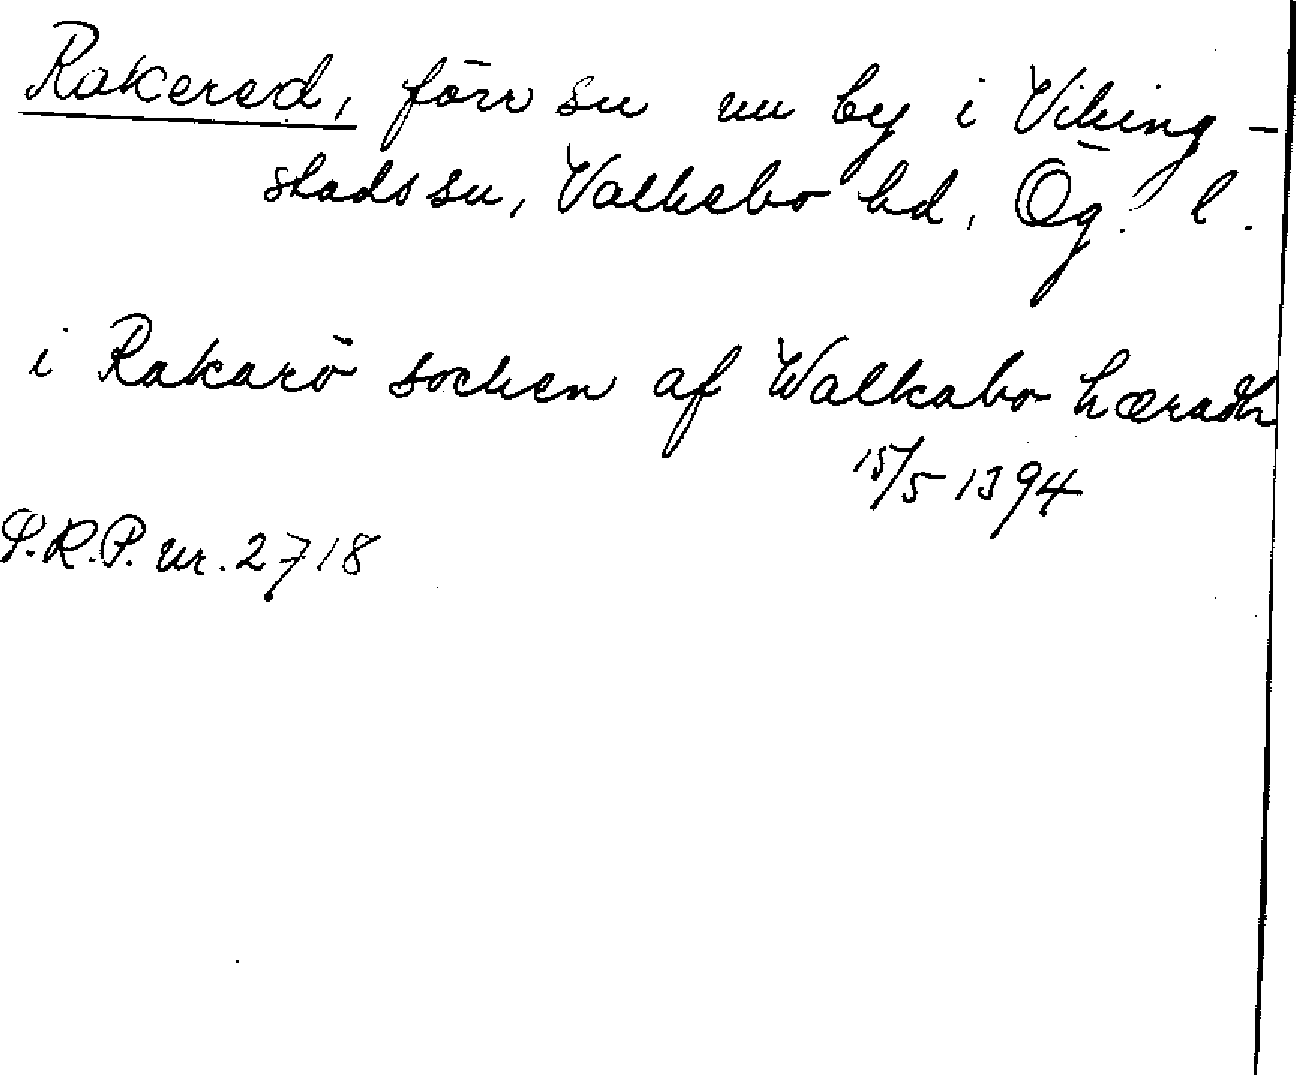 Rakered, förr sn nu by i Viking-
stads sn, Valkebo hd, Ög. l.
i Rakarö socken af Walkabo hæradh
15/5 1394
S.R.P. nr. 2718